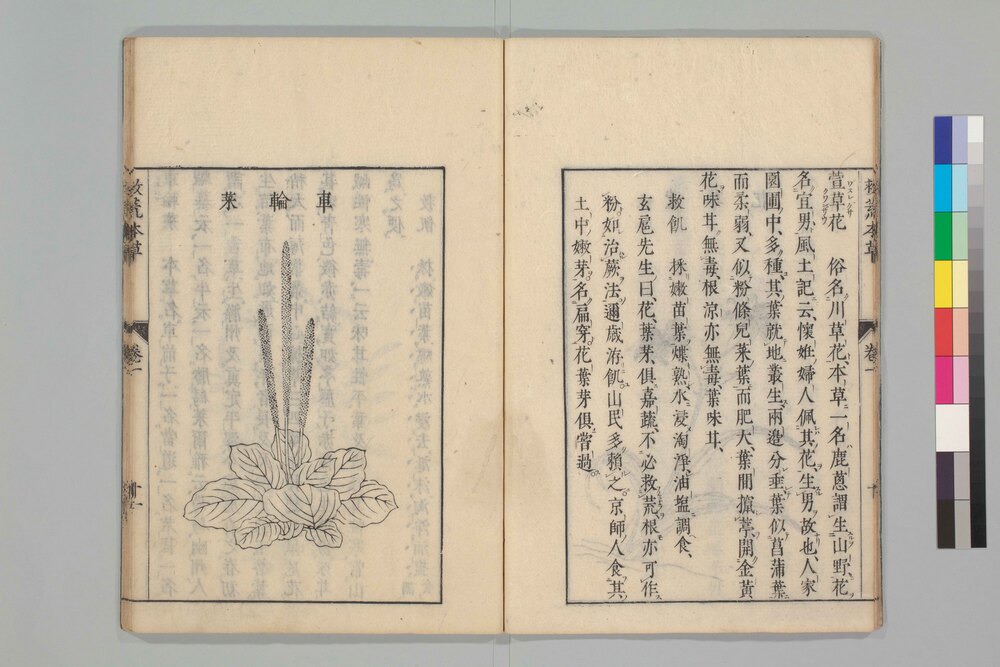 萱草花　俗名川草花本草一名鹿蔥謂生山野花
名宜男風土記云懷姙婦人佩其花生男故也人家
園圃中多種其葉就地叢生兩邊分垂葉似菖蒲葉
而柔弱又似粉條兒菜葉而肥大葉間攛葶開金黃
花味甘無毒根涼亦無毒葉味甘
救飢　採嫩苗葉煠熟水浸淘淨油塩調食
玄扈先生曰花葉芽俱嘉蔬不必救荒根亦可作
粉如治蕨法邇歲洊飢山民多賴之京師人食其
土中嫩芽名扁穿花葉芽俱嘗過
救荒本草
卷一
車輪菜